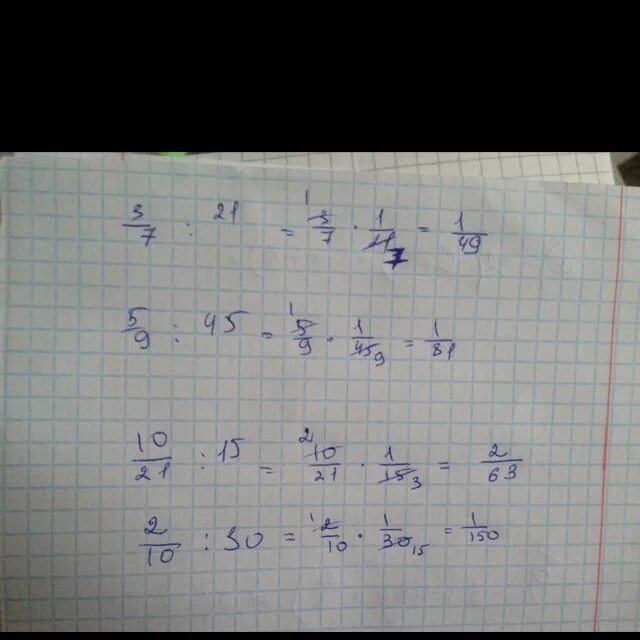 3/7 : 21 = ¹3/7 · 1/21 7 = 1/49
5/9 : 45 = ¹5/9 · 1/45 9 = 1/81
10/21 : 15 = ²10/21 · 1/15 3 = 2/63
2/10 : 30 = ¹2/10 · 1/30 15 = 1/150